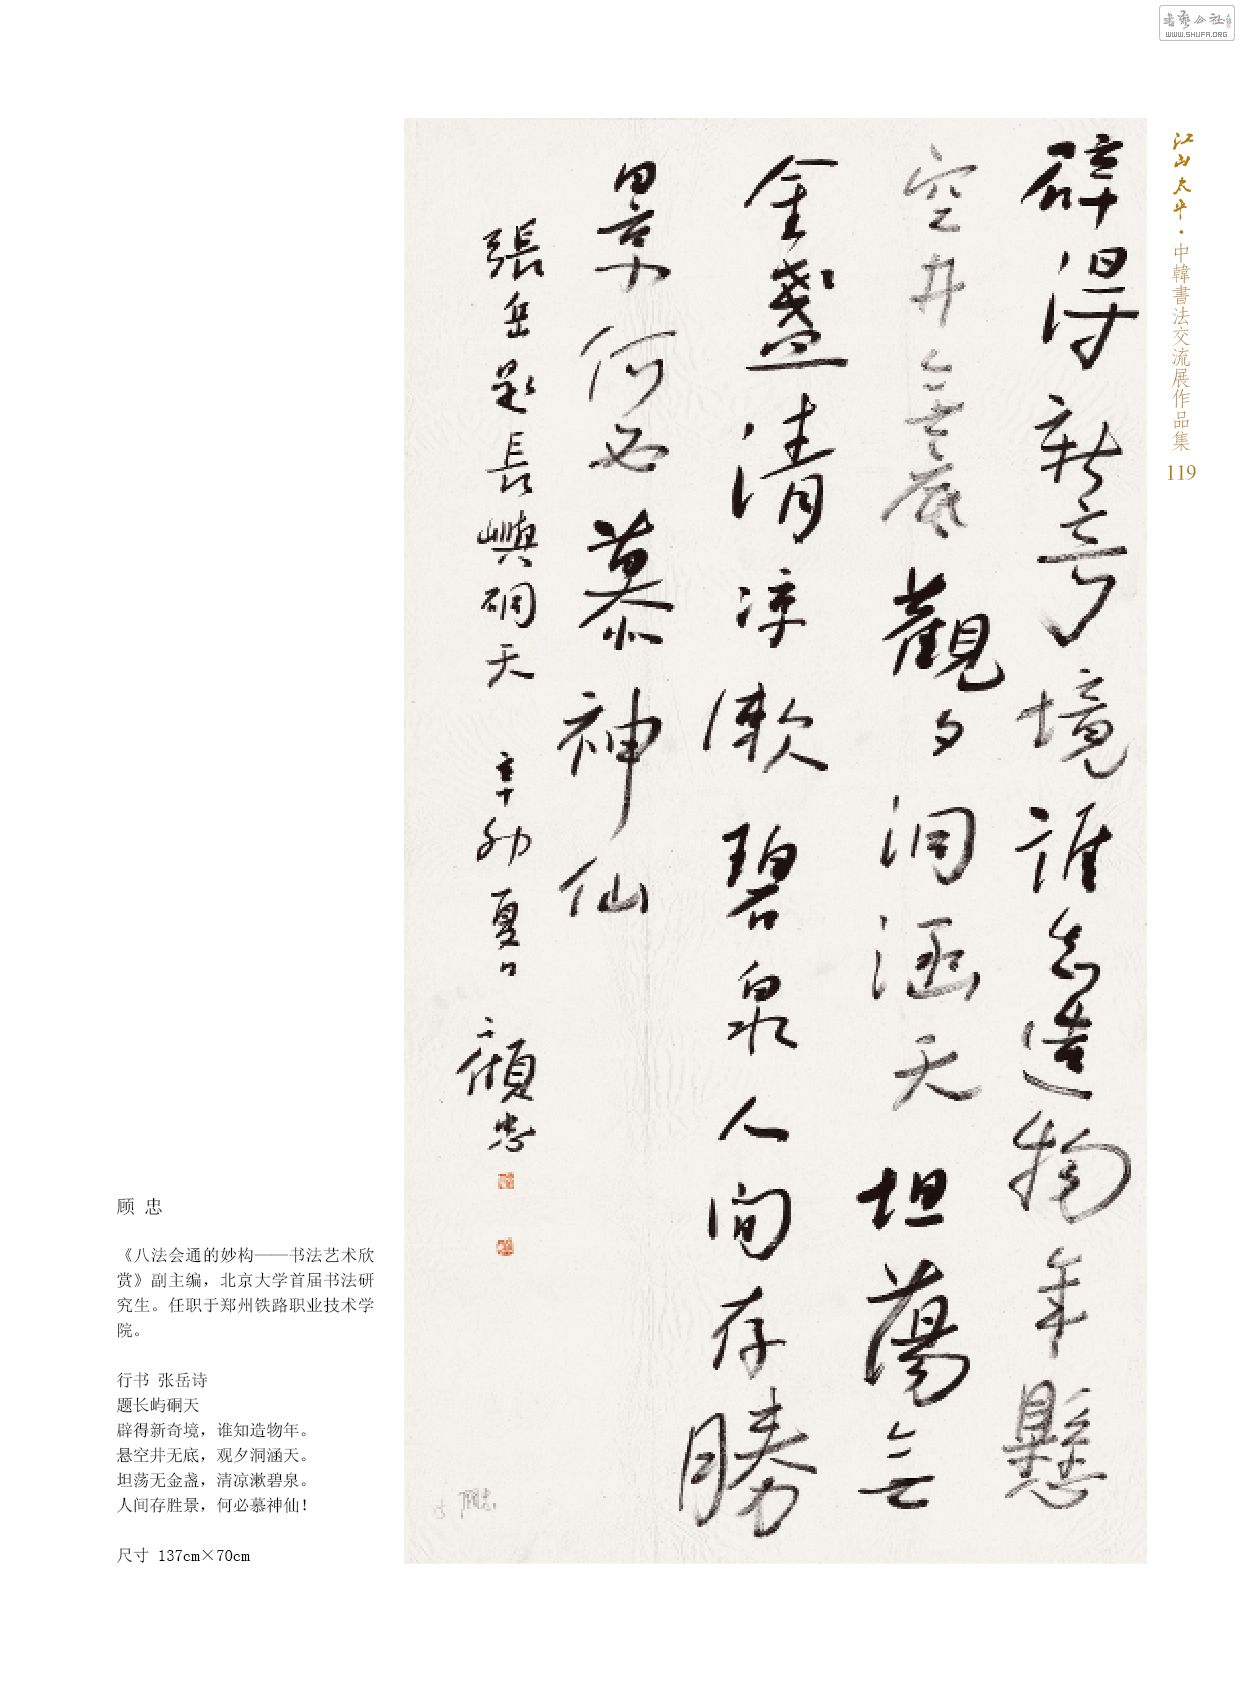 书艺公社
WWW.SHUFA.ORG
江山太平·中韓書法交流展作品集
119
辟得新奇境誰知造物年懸
空井無底觀夕洞涵天坦蕩無
金盞清凉漱碧泉人间存勝
景何必慕神仙
張岳題長嶼硐天 辛卯夏日 顧忠
顾 忠
《八法会通的妙构——书法艺术欣
赏》副主编，北京大学首届书法研
究生。任职于郑州铁路职业技术学
院。
行书 张岳诗
题长屿硐天
辟得新奇境，谁知造物年。
悬空井无底，观夕洞涵天。
坦荡无金盏，清凉漱碧泉。
人间存胜景，何必慕神仙！
尺寸 137cm×70cm